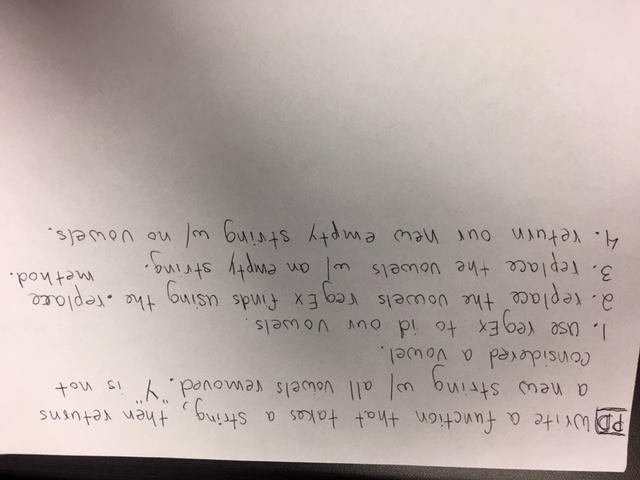 PD Write a function that takes a string, then returns
a new string w/ all vowels removed. "Y" is not
considered a vowel.
1. use regEx to id our vowels.
2. replace the vowels regEx finds using the .replace
method.
3. replace the vowels w/ an empty string.
4. return our new empty string w/ no vowels.